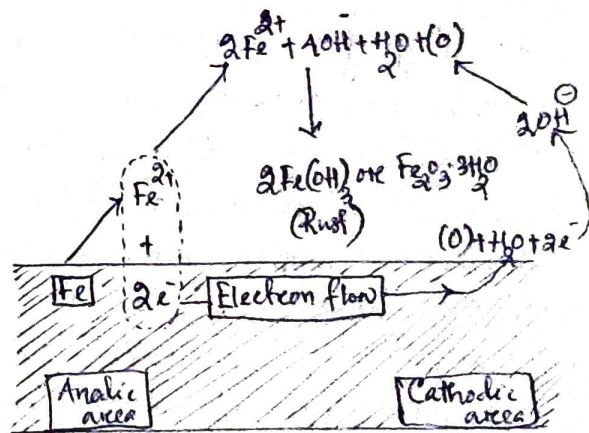 2Fe²⁺ + 4OH⁻ + H₂O + (O)
2OH⊖
2Fe(OH)₃ or Fe₂O₃·3H₂O
(Rust)
Fe²⁺
+
2e⁻
(O) + H₂O + 2e⁻
Fe
Electron flow
Anodic
area
Cathodic
area